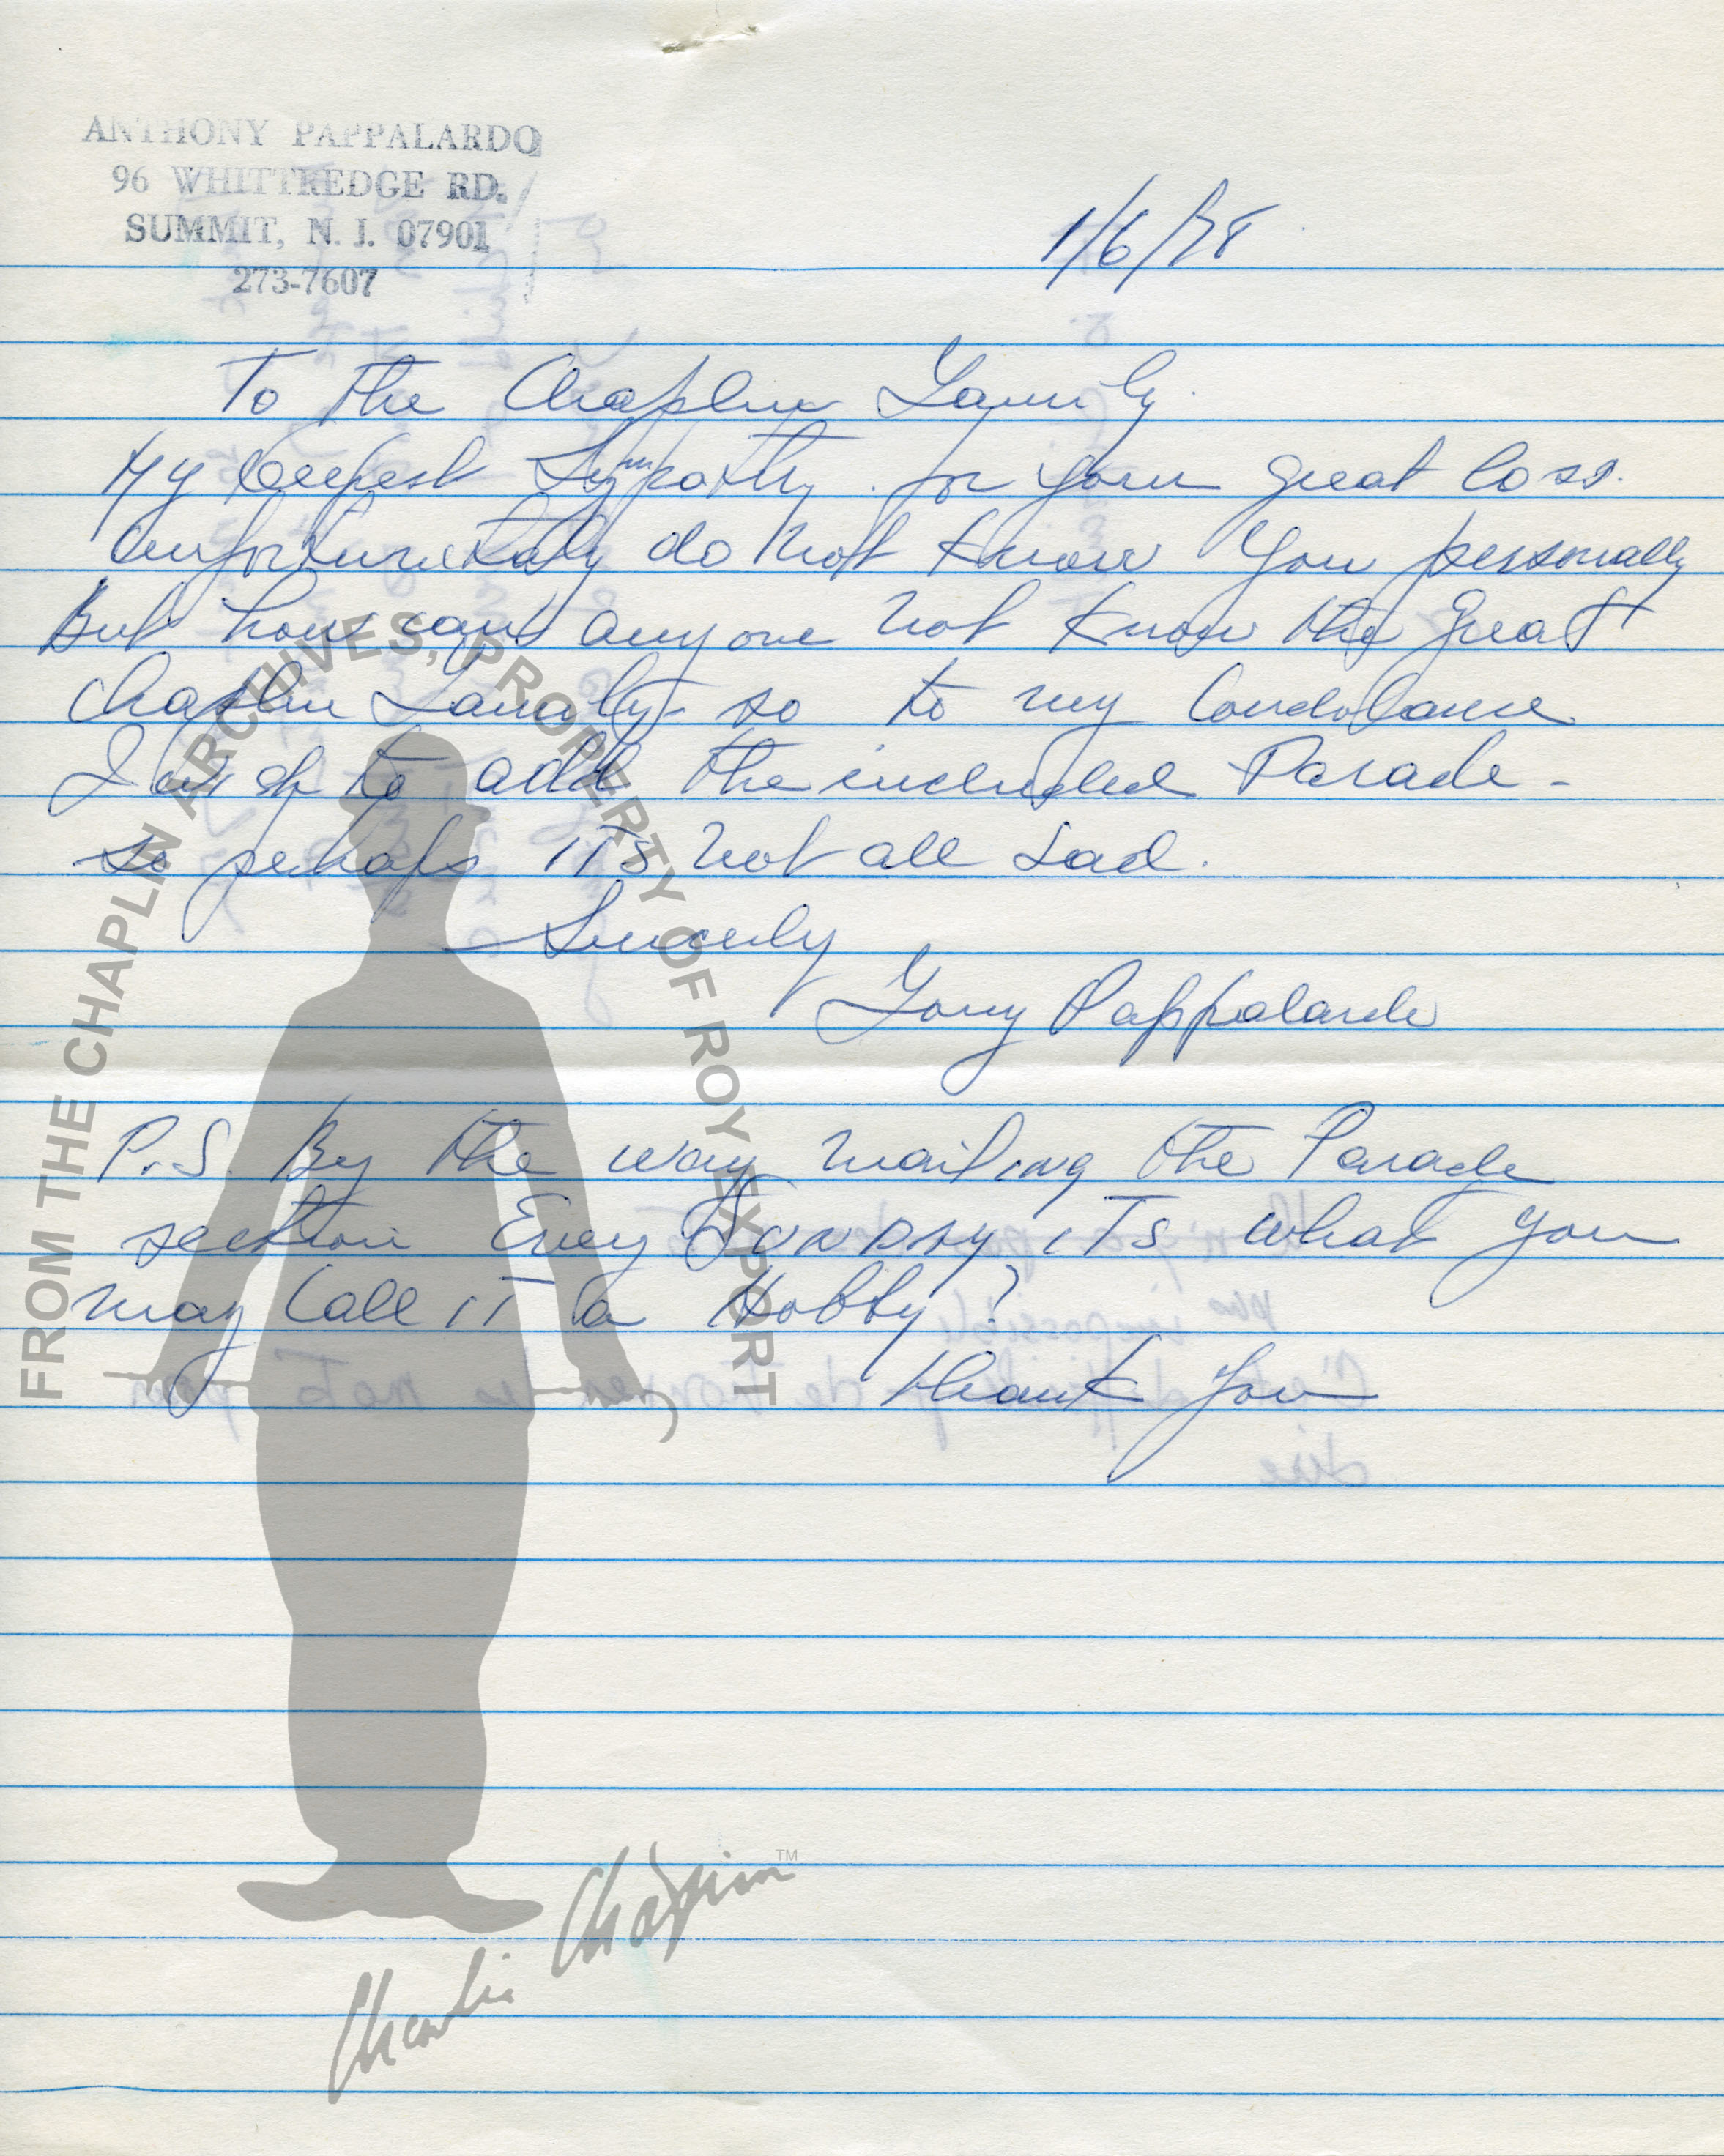 ANTHONY PAPPALARDO
96 WHITTREDGE RD.
SUMMIT, N. J. 07901
273-7607
1/6/78
To the Chaplin Family.
My Deepest Sympathy. for your great loss.
Unfortunately do not know you personally
But how can anyone not know the great
Chaplin Family- so to my Condolance
I wish to add the included Parade-
so perhaps ITs not all sad.
Sincerly
Tony Pappalardo
P.S. By the way mailing the Parade
section Every SUNDAY ITs what you
may Call IT a Hobby?
Thank You
FROM THE CHAPLIN ARCHIVES, PROPERTY OF ROY EXPORT
Charlie Chaplin™